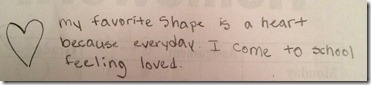 my favorite shape is a heart
because everyday I come to school
feeling loved.